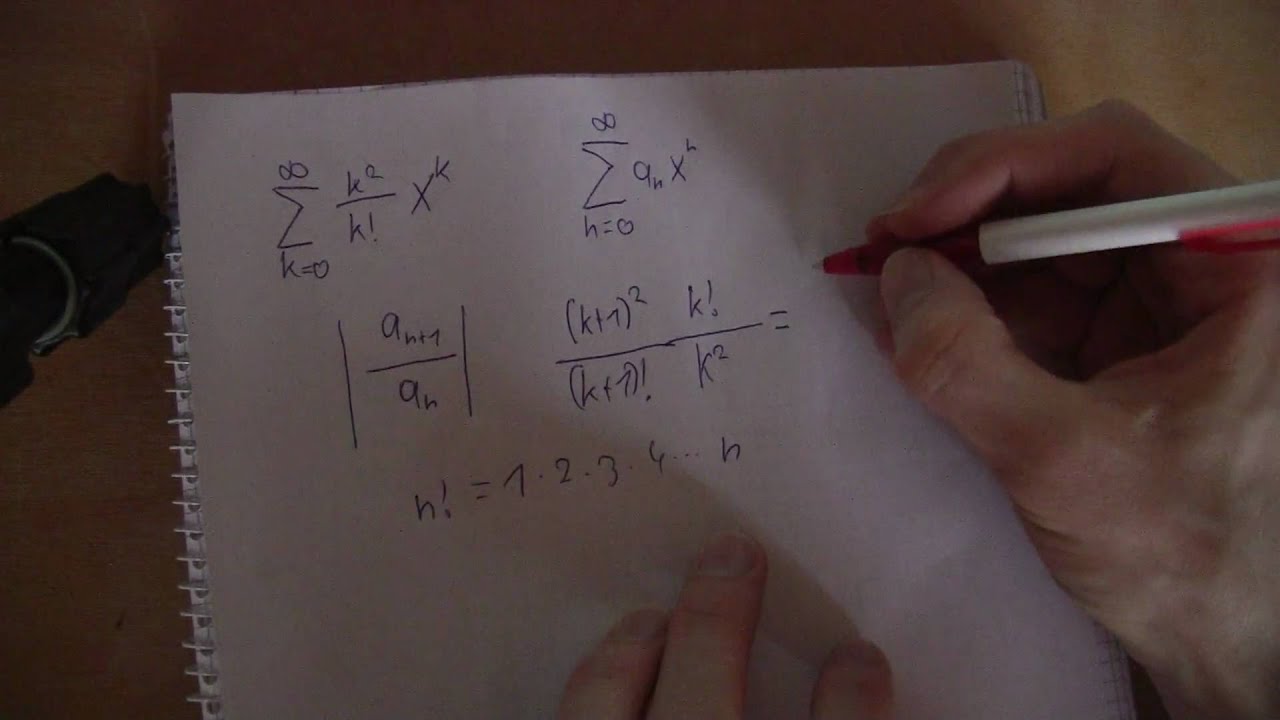 ∑_{k=0}^{∞} k²/k! x^k
∑_{n=0}^{∞} a_n x^n
|a_{n+1}/a_n|
(k+1)² k! / (k+1)! k² =
n! = 1 · 2 · 3 · 4 ... n